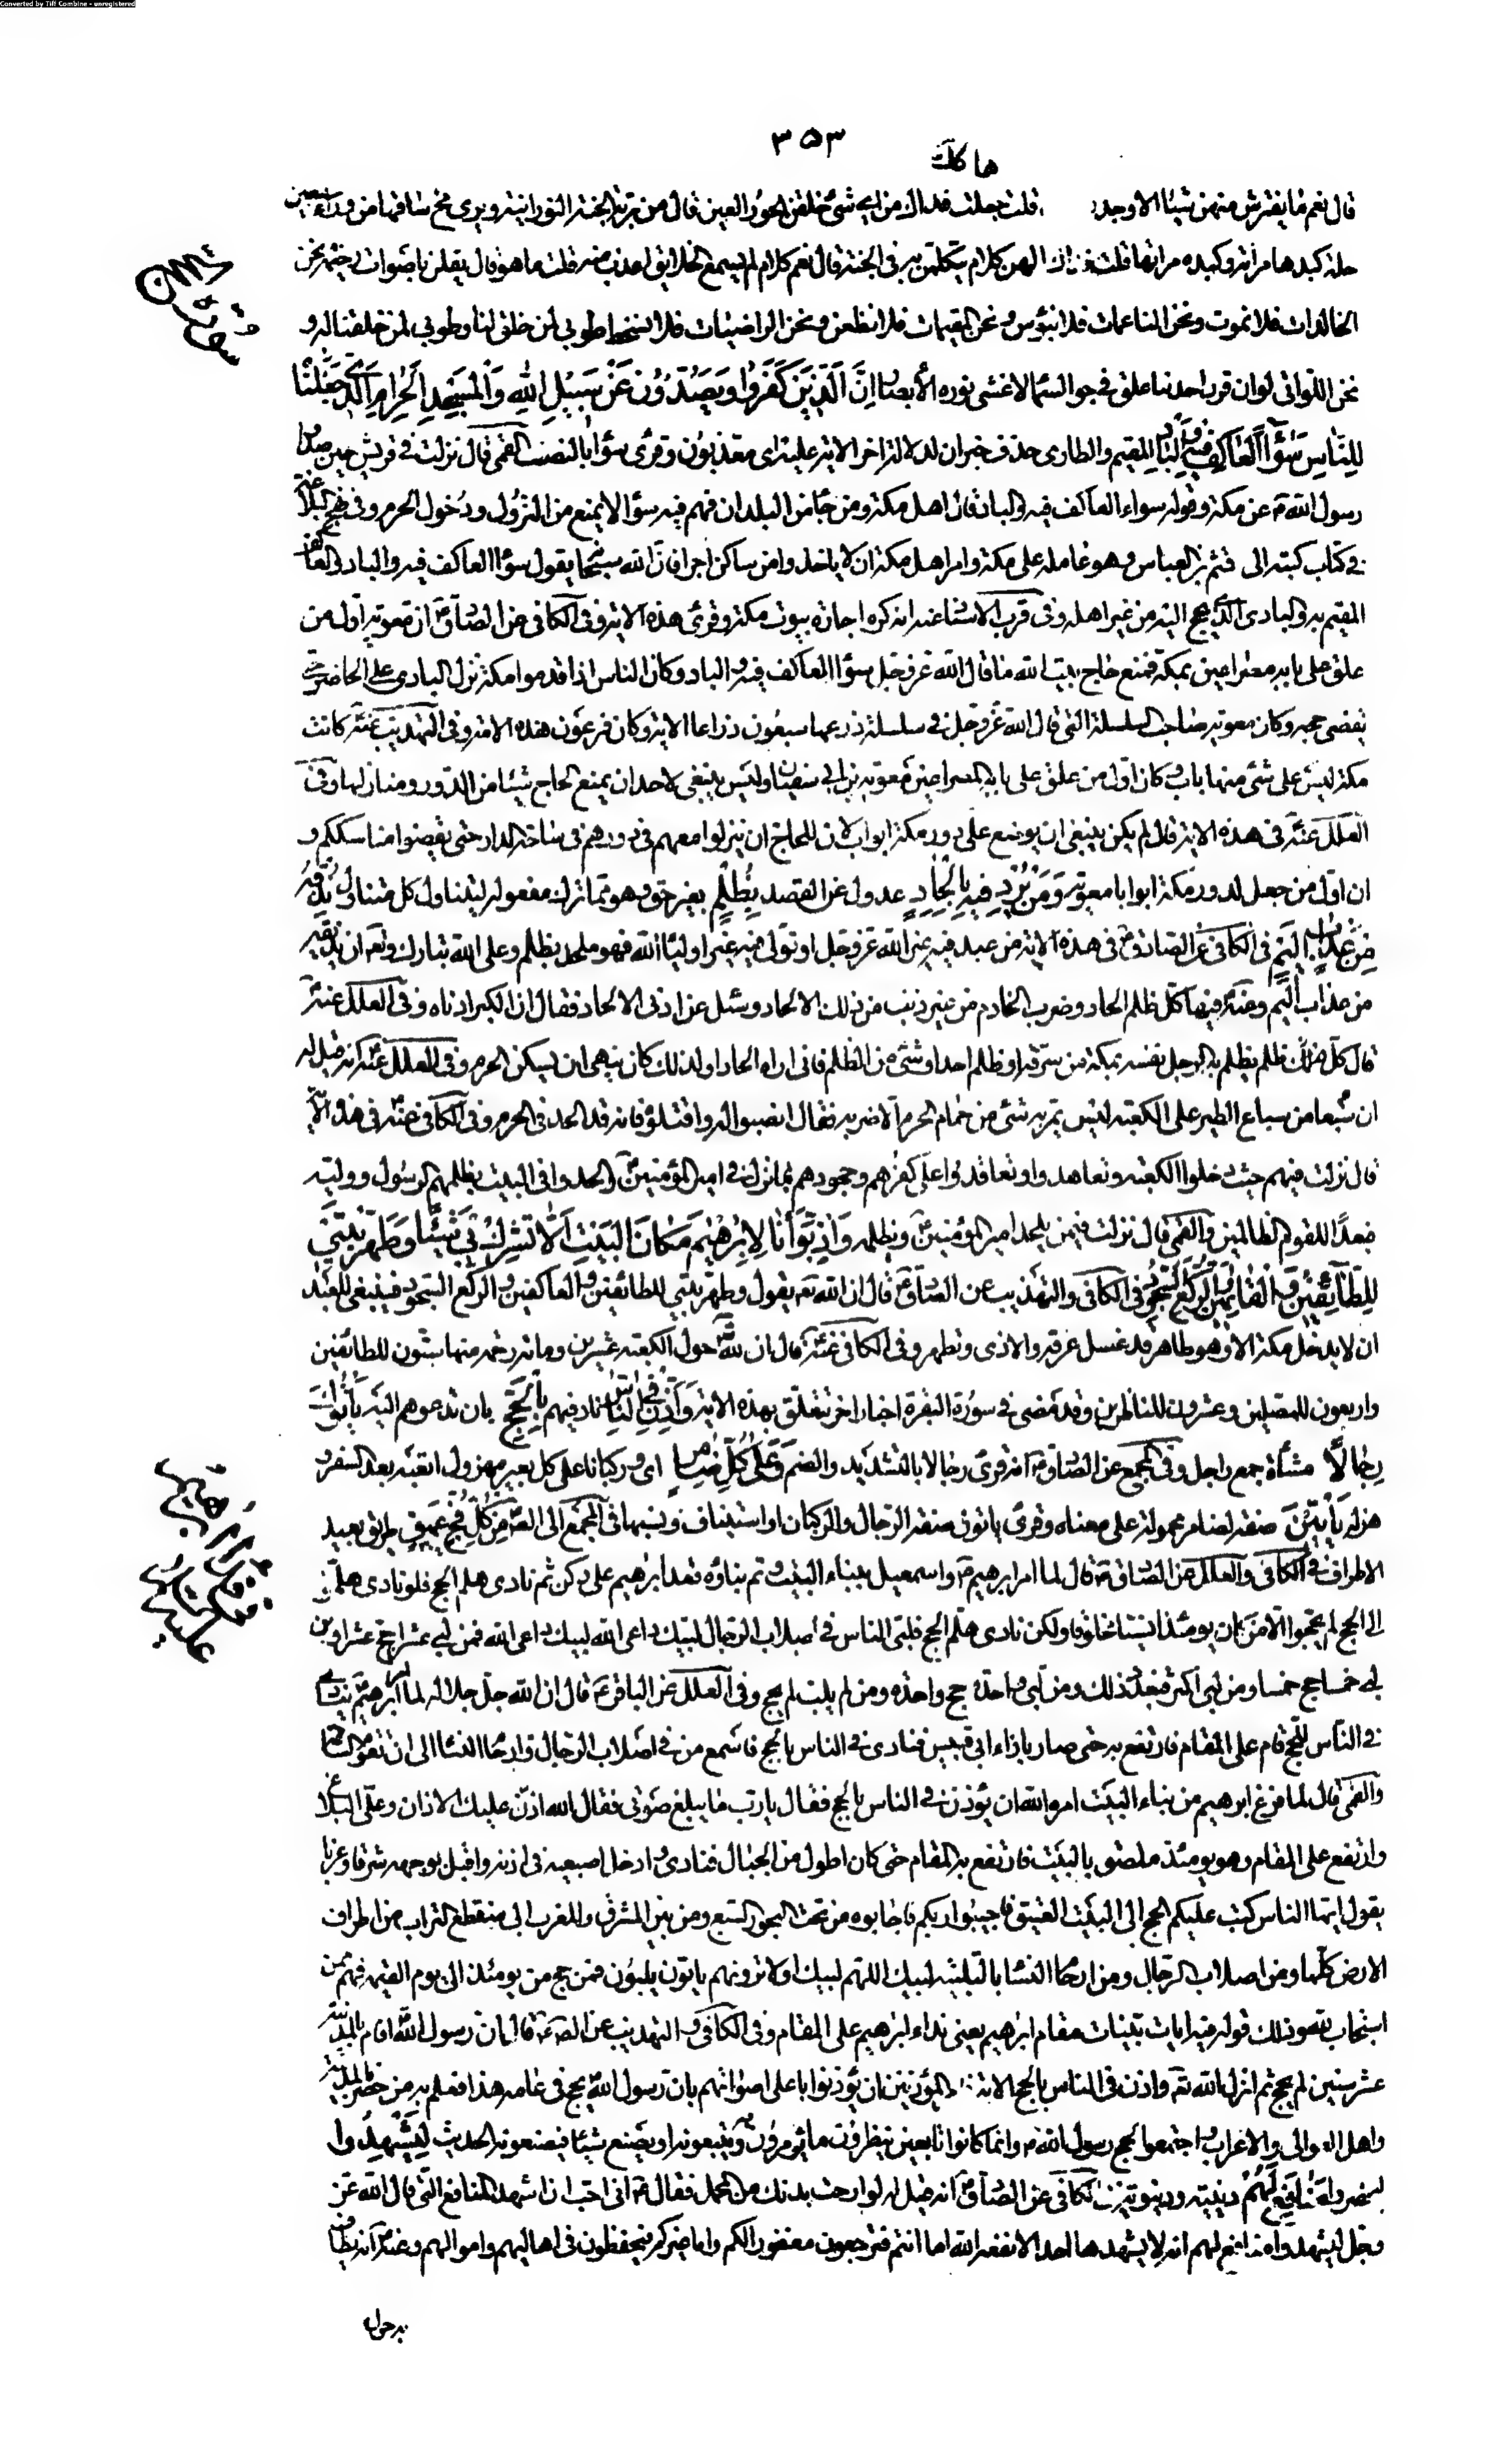 Converted by Tiff Combine - unregistered
٣٥٣
ها كلك
قال نعم ما يفترش منهن شيئا الا وجدها قلت جعلت فداك من اي شئ خلقن الحور العين قال من تربة الجنة النورانية ويرى مخ ساقيها من وراء سبعين
حلة كبدها مراته وكبده مراتها قلت جعلت فداك الهن كلام يتكلمن به في الجنة قال نعم كلام لم يسمع الخلايق اعذب منه قلت ما هو قال يقلن باصوات رخيمة نحن
الخالدات فلا نموت ونحن الناعمات فلا نبؤس ونحن المقيمات فلا نظعن ونحن الراضيات فلا نسخط طوبى لمن خلق لنا وطوبى لمن خلقنا له و
نحن اللواتي لو ان قرن احدنا علق في جو السماء لاغشى نوره الأبصار إِنَّ الَّذِينَ كَفَرُوا وَيَصُدُّونَ عَنْ سَبِيلِ اللهِ وَالْمَسْجِدِ الْحَرَامِ الَّذِي جَعَلْنَاهُ
لِلنَّاسِ سَوَاءً الْعَاكِفُ فِيهِ وَالْبَادِ المقيم والطارى حذف خبر ان لدلالة اخر الاية عليه اى معذبون وقرئ سواء بالنصب القمى قال نزلت في قريش حين صدوا
رسول الله ص عن مكة وقوله سواء العاكف فيه والباد قال اهل مكة ومن جاء من البلدان فهم فيه سواء لا يمنع من النزول ودخول الحرم وفي نهج البلاغة
في كتاب كتبه الى قثم بن العباس وهو عامله على مكة وامر اهل مكة ان لا ياخذوا من ساكن اجرا فان الله سبحانه يقول سواء العاكف فيه والباد والعاكف
المقيم به والبادى الذي يحج اليه من غير اهله وفي قرب الاسناد عنه انه كره اجارة بيوت مكة وقرئ هذه الاية وفي الكافي عن الصادق ان معوية اول من
علق على بابه مصراعين بمكة فمنع حاج بيت الله ما قال الله عز وجل سواء العاكف فيه والباد وكان الناس اذا قدموا مكة نزل البادى على الحاضر حتى
يقضى حجه وكان معوية صاحب السلسلة التي قال الله عز وجل في سلسلة ذرعها سبعون ذراعا الاية وكان فرعون هذه الامة وفي التهذيب عنه كانت
مكة ليس على شئ منها باب وكان اول من علق على بابه المصراعين معوية بن ابي سفيان وليس ينبغى لاحد ان يمنع الحاج شيئا من الدور ومنازلها وفي
العلل عنه في هذه الاية قال لم يكن ينبغى ان يوضع على دور مكة ابواب لان للحاج ان ينزلوا معهم في دورهم في ساحة الدار حتى يقضوا مناسكهم و
ان اول من جعل لدور مكة ابوابا معوية وَمَنْ يُرِدْ فِيهِ بِإِلْحَادٍ عدول عن القصد بِظُلْمٍ بغير حق وهو مما ترك مفعوله ليتناول كل متناول نُذِقْهُ
مِنْ عَذَابٍ أَلِيمٍ في الكافي عن الصادق في هذه الاية من عبد فيه غير الله عز وجل او تولى فيه غير اولياء الله فهو ملحد بظلم وعلى الله تبارك وتعالى ان يذيقه
من عذاب أليم وعنه فيها كل ظلم الحاد وضرب الخادم من غير ذنب من ذلك الالحاد وسئل عن ادنى الالحاد فقال ان الكبر ادناه وفي العلل عنه
قال كل ظلم يظلم به الرجل نفسه بمكة من سرقة او ظلم احد او شئ من الظلم فاني اراه الحادا ولذلك كان ينهى ان يسكن الحرم وفي العلل عنه انه قيل له
ان سبعا من سباع الطير على الكعبة ليس يمر به شئ من حمام الحرم الا ضربه فقال انصبوا له واقتلوه فانه قد الحد في الحرم وفي الكافي عنه في هذه الاية
قال نزلت فيهم حيث دخلوا الكعبة وتعاهدوا وتعاقدوا على كفرهم وجحودهم بما نزل في امير المؤمنين فالحدوا في البيت بظلمهم الرسول ووليه
فبعدا للقوم الظالمين والقمى قال نزلت فيمن يلحد امير المؤمنين ويظلمه وَإِذْ بَوَّأْنَا لِإِبْرَاهِيمَ مَكَانَ الْبَيْتِ أَلَّا تُشْرِكْ بِي شَيْئًا وَطَهِّرْ بَيْتِيَ
لِلطَّائِفِينَ وَالْقَائِمِينَ وَالرُّكَّعِ السُّجُودِ في الكافي والتهذيب عن الصادق قال ان الله تع يقول وطهر بيتي للطائفين والعاكفين والركع السجود فينبغى للعبد
ان لا يدخل مكة الا وهو طاهر قد غسل عرقه والاذى وتطهر وفي الكافي عنه قال ان لله حول الكعبة عشرين ومائة رحمة منها ستون للطائفين
واربعون للمصلين وعشرون للناظرين وقد مضى في سورة البقرة اخبار اخر تتعلق بهذه الاية وَأَذِّنْ فِي النَّاسِ ناد فيهم بِالْحَجِّ بان تدعوهم اليه يَأْتُوكَ
رِجَالًا مشاة جمع راجل وفي المجمع عن الصادق انه قرئ رجالا بالتشديد والضم وَعَلَى كُلِّ ضَامِرٍ اى وركبانا على كل بعير مهزول اتعبه بعد السفر و
هزله يَأْتِينَ صفة لضامر محمولة على معناه وقرئ ياتون صفة الرجال والركبان او استيناف ونسبها في المجمع الى الص مِنْ كُلِّ فَجٍّ عَمِيقٍ طريق بعيد
الاطراف في الكافي والعلل عن الصادق قال لما امر ابرهيم واسمعيل ببناء البيت وتم بناؤه قعد ابرهيم على ركن ثم نادى هلم الحج فلو نادى هلموا
الى الحج لم يحج الا من كان يومئذ انسيا مخلوقا ولكن نادى هلم الحج فلبى الناس في اصلاب الرجال لبيك داعى الله لبيك داعى الله فمن لبى عشرا حج عشرا ومن
لبى خمسا حج خمسا ومن لبى اكثر فبعدد ذلك ومن لبى واحدة حج واحدة ومن لم يلب لم يحج وفي العلل عن الباقر قال ان الله جل جلاله لما امر ابرهيم ينادى
في الناس بالحج قام على المقام فارتفع به حتى صار بازاء ابي قبيس فنادى في الناس بالحج فاسمع من في اصلاب الرجال وارحام النساء الى ان تقوم الساعة
والقمى قال لما فرغ ابرهيم من بناء البيت امره الله ان يؤذن في الناس بالحج فقال يا رب ما يبلغ صوتى فقال الله اذن عليك الاذان وعلى البلاغ
وارتفع على المقام وهو يومئذ ملصق بالبيت فارتفع به المقام حتى كان اطول من الجبال فنادى وادخل اصبعيه في اذنيه واقبل بوجهه شرقا وغربا
يقول ايها الناس كتب عليكم الحج الى البيت العتيق فاجيبوا ربكم فاجابوه من تحت البحور السبع ومن بين المشرق والمغرب الى منقطع التراب من اطراف
الارض كلها ومن اصلاب الرجال ومن ارحام النساء بالتلبية لبيك اللهم لبيك او لا ترونهم ياتون يلبون فمن حج من يومئذ الى يوم القيمة فهم ممن
استجاب لله وذلك قوله فيه ايات بينات مقام ابرهيم يعنى نداء ابرهيم على المقام وفي الكافي والتهذيب عن الص قال ان رسول الله اقام بالمدينة
عشر سنين لم يحج ثم انزل الله تع واذن في الناس بالحج الاية فامر المؤذنين ان يؤذنوا باعلى اصواتهم بان رسول الله يحج في عامه هذا فعلم به من حضر بالمدينة
واهل العوالى والاعراب واجتمعوا لحج رسول الله وانما كانوا تابعين ينظرون ما يؤمرون ويتبعونه او يصنع شيئا فيصنعونه الحديث لِيَشْهَدُوا
ليحضروا مَنَافِعَ لَهُمْ دينية ودنيوية في الكافي عن الصادق انه قيل له لو ارحت بدنك من المحمل فقال انى احب ان اشهد المنافع التي قال الله عز
وجل ليشهدوا منافع لهم انه لا يشهدها احد الا نفعه الله اما انتم فترجعون مغفورا لكم واما غيركم فيحفظون في اهاليهم واموالهم وعنه انه يطاف
به حول